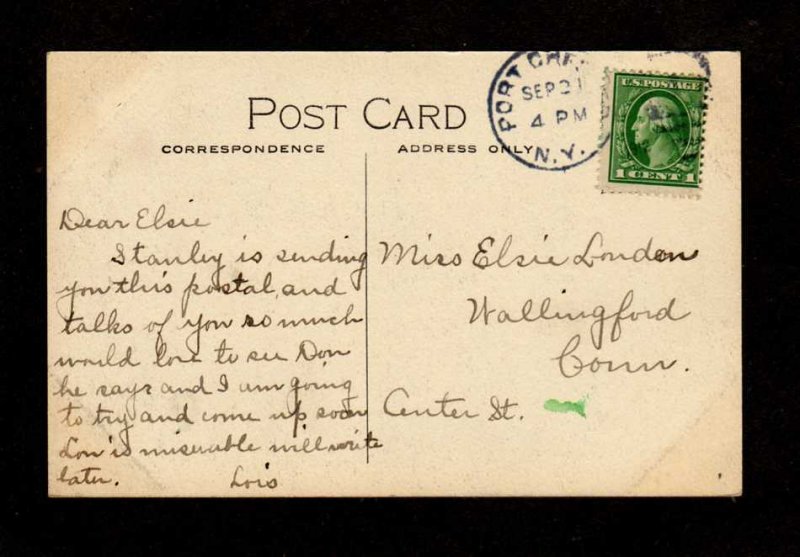 POST CARD
CORRESPONDENCE
ADDRESS ONLY
PORT CHE
SEP 21
4 PM
N.Y.
U.S. POSTAGE
1 CENT 1
Dear Elsie
Stanley is sending
you this postal, and
talks of you so much
would love to see Don
he says and I am going
to try and come up soon
Lon is miserable will write
later.
Lois
Miss Elsie London
Wallingford
Conn.
Center St.